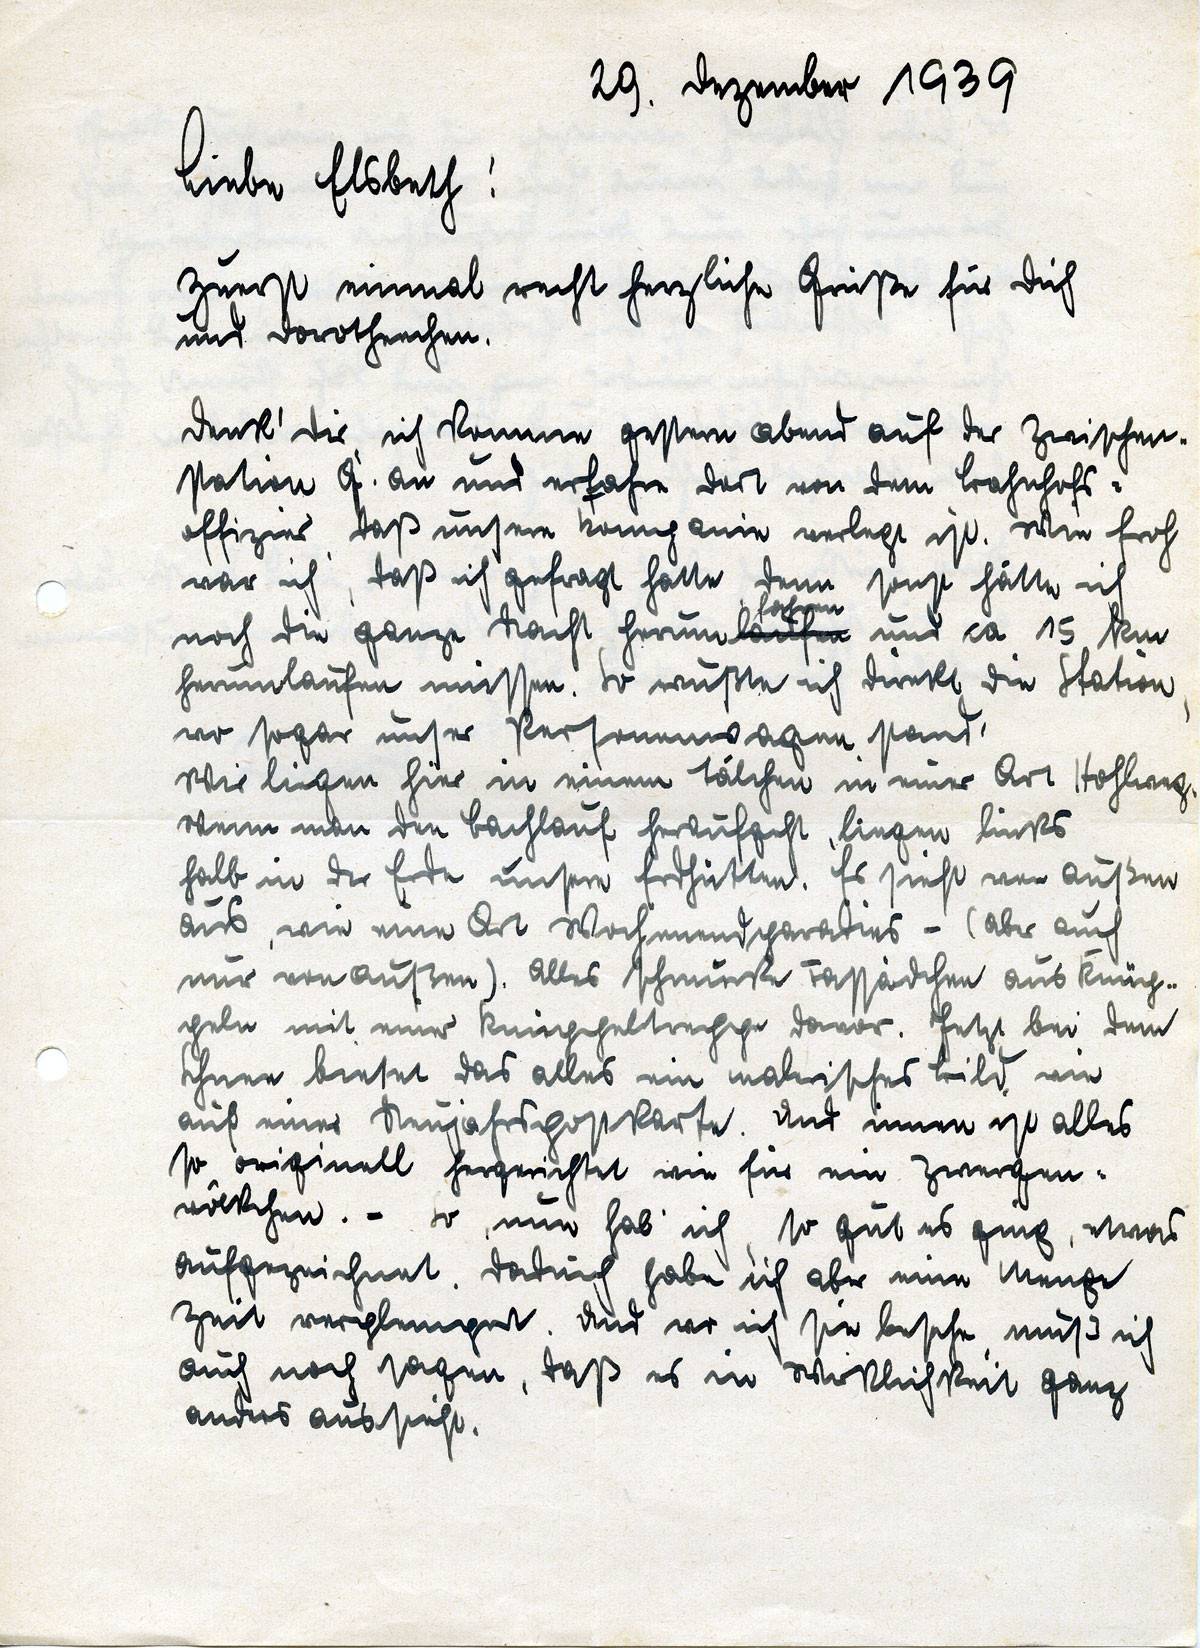 29. Dezember 1939
Liebe Elsbeth!
Zuerst einmal recht herzliche Grüße für Dich
und Dorotheechen.
Denk' Dir, ich komme gestern abend auf der Zwischen-
station G. an und erfahre dort von dem Bahnhofs-
offizier, daß unsere Kompanie verlegt ist. Wie froh
war ich, daß ich gefragt hatte, denn sonst hätte ich
fahren
noch die ganze Nacht herumlaufen und ca 15 km
herumlaufen müssen. So wußte ich direkt die Station,
wo sogar unser Personenwagen stand.
Wir liegen hier in einem Tälchen in einer Art Hohlweg.
Wenn man den Bachlauf heraufgeht, liegen links
halb in der Erde unsere Erdhütten. Es sieht von außen
aus, wie eine Art Wochenendparadies - (aber auch
nur von außen). Alles schmucke Fassädchen aus Knüp-
peln mit einer Knüppeltreppe davor. Jetzt bei dem
Schnee bietet das alles ein malerisches Bild, wie
auf einer Neujahrspostkarte. Und innen ist alles
so originell hergerichtet wie für ein Zwergen-
völkchen. - So, nun hab' ich, so gut es ging, etwas
aufgezeichnet. Dadurch habe ich aber eine Menge
Zeit verplempert. Und wo ich sie besehe, muß ich
auch noch sagen, daß es in Wirklichkeit ganz
anders aussieht.